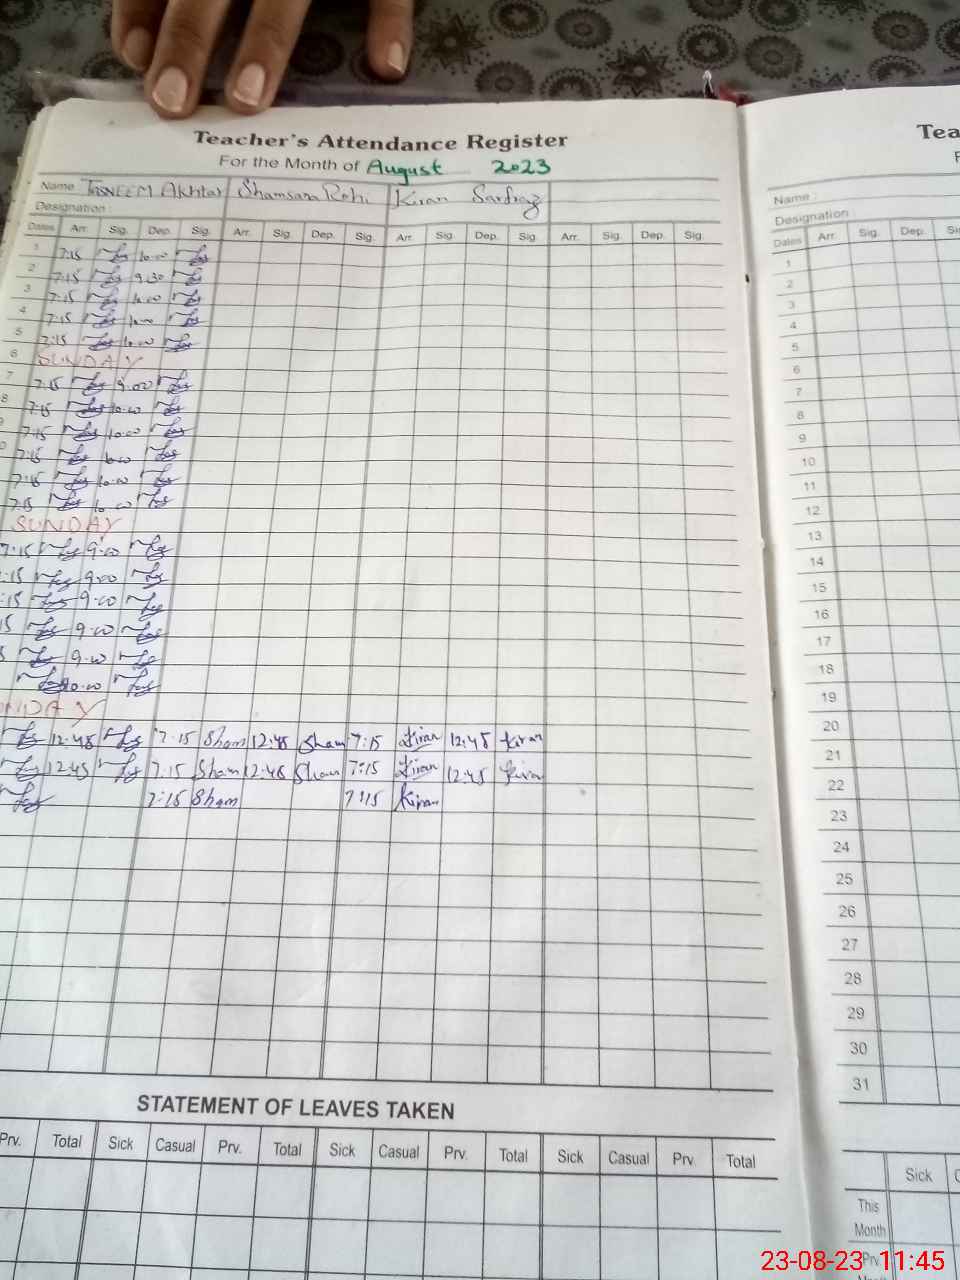 Teacher's Attendance Register
For the Month of August 2023
Name TASNEEM AKhtar Shamsara Kiran Sarfraz
Designation :
Dates Arr. Sig. Dep. Sig. Arr. Sig. Dep. Sig. Arr. Sig. Dep. Sig. Arr. Sig. Dep. Sig.
1 7:15 10:00
2 7:15 9:30
3 7:15 10:00
4 7:15 10:00
5 7:15 10:00
6 SUNDAY
7 7:15 9:00
8 7:15 10:00
7:15 10:00
7:15 10:00
7:15 10:00
7:15 10:00
SUNDAY
7:15 9:00
:15 9:00
:15 9:00
15 9:00
9:00
10:00
NDAY
12:45 7:15 Sham 12:45 Sham 7:15 Kiran 12:45 Kiran
12:45 7:15 Sham 12:45 Sham 7:15 Kiran 12:45 Kiran
7:15 Sham 7:15 Kiran
STATEMENT OF LEAVES TAKEN
Prv. Total Sick Casual Prv. Total Sick Casual Prv. Total Sick Casual Prv. Total
Tea
F
Name :
Designation
Dates Arr. Sig. Dep. Si
1
2
3
4
5
6
7
8
9
10
11
12
13
14
15
16
17
18
19
20
21
22
23
24
25
26
27
28
29
30
31
Sick C
This
Month
Prv.
23-08-23 11:45